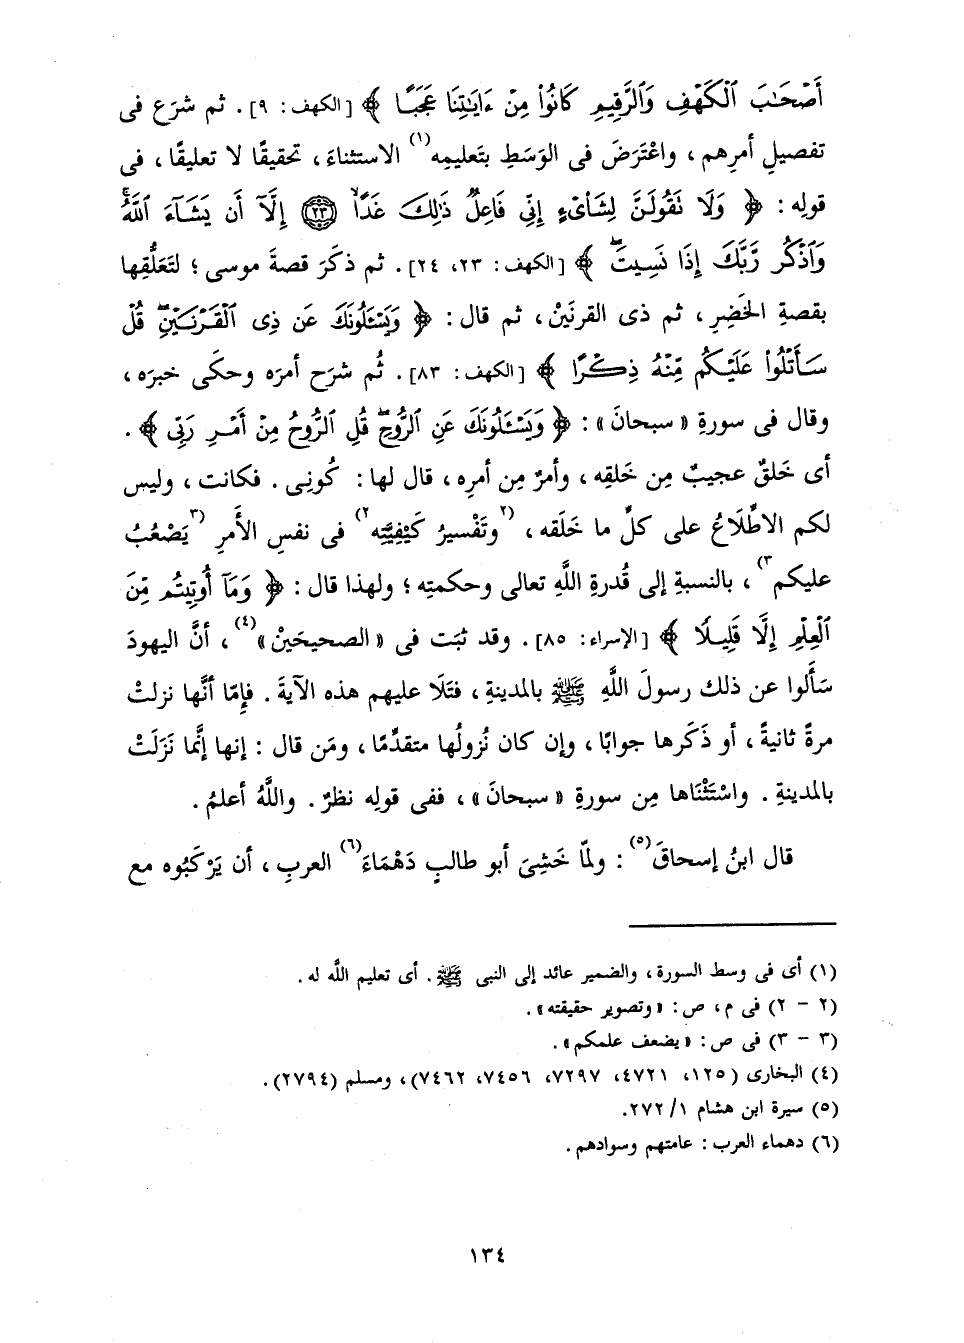 أَصْحَٰبَ ٱلْكَهْفِ وَٱلرَّقِيمِ كَانُوا۟ مِنْ ءَايَٰتِنَا عَجَبًا ﴾ [الكهف: ٩]. ثم شرَع فى
تفصيلِ أمرِهم، واعْتَرَضَ فى الوَسَطِ بتَعليمِه(١) الاستثناءَ، تحقيقًا لا تعليقًا، فى
قولِه: ﴿ وَلَا نَقُولَنَّ لِشَا۟ىْءٍ إِنِّى فَاعِلٌ ذَٰلِكَ غَدًا ﴿٢٣﴾ إِلَّآ أَن يَشَآءَ ٱللَّهُ
وَٱذْكُر رَّبَّكَ إِذَا نَسِيتَ ﴾ [الكهف: ٢٣، ٢٤]. ثم ذكَرَ قصةَ موسى؛ لتَعَلُّقِها
بقصةِ الخَضِرِ، ثم ذى القرنَيْنِ، ثم قال: ﴿ وَيَسْـَٔلُونَكَ عَن ذِى ٱلْقَرْنَيْنِ قُلْ
سَأَتْلُوا۟ عَلَيْكُم مِّنْهُ ذِكْرًا ﴾ [الكهف: ٨٣]. ثُم شرَح أمرَه وحكَى خبرَه،
وقال فى سورةِ «سبحانَ»: ﴿ وَيَسْـَٔلُونَكَ عَنِ ٱلرُّوحِ قُلِ ٱلرُّوحُ مِنْ أَمْرِ رَبِّى ﴾.
أى خَلقٌ عجيبٌ مِن خَلقِه، وأمرٌ مِن أمرِه، قال لها: كُونِى. فكانت، وليس
لكم الاطِّلَاعُ على كلِّ ما خَلَقه، (٢وتَفْسيرُ كَيْفِيَّتِه٢) فى نفسِ الأَمرِ (٣يَصْعُبُ
عليكم٣)، بالنسبةِ إلى قُدرةِ اللَّهِ تعالى وحكمتِه؛ ولهذا قال: ﴿ وَمَآ أُوتِيتُم مِّنَ
ٱلْعِلْمِ إِلَّا قَلِيلًا ﴾ [الإسراء: ٨٥]. وقد ثبَت فى «الصحيحَيْنِ»(٤)، أنَّ اليهودَ
سَأَلوا عن ذلك رسولَ اللَّهِ ﷺ بالمدينةِ، فتَلَا عليهم هذه الآيةَ. فإِمّا أنَّها نزلتْ
مرةً ثانيةً، أو ذَكَرها جوابًا، وإن كان نُزولُها متقدِّمًا، ومَن قال: إنها إنَّما نَزَلَتْ
بالمدينةِ. واسْتَثْنَاها مِن سورةِ «سبحانَ»، ففى قولِه نظرٌ. واللَّهُ أعلمُ.
قال ابنُ إسحاقَ(٥): ولمّا خَشِىَ أبو طالبٍ دَهْمَاءَ(٦) العربِ، أن يَرْكَبُوه مع
(١) أى فى وسط السورة، والضمير عائد إلى النبى ﷺ. أى تعليم اللَّه له.
(٢ - ٢) فى م، ص: «وتصوير حقيقته».
(٣ - ٣) فى ص: «يضعف علمكم».
(٤) البخارى (١٢٥، ٤٧٢١، ٧٢٩٧، ٧٤٥٦، ٧٤٦٢)، ومسلم (٢٧٩٤).
(٥) سيرة ابن هشام ١/ ٢٧٢.
(٦) دهماء العرب: عامتهم وسوادهم.
١٣٤